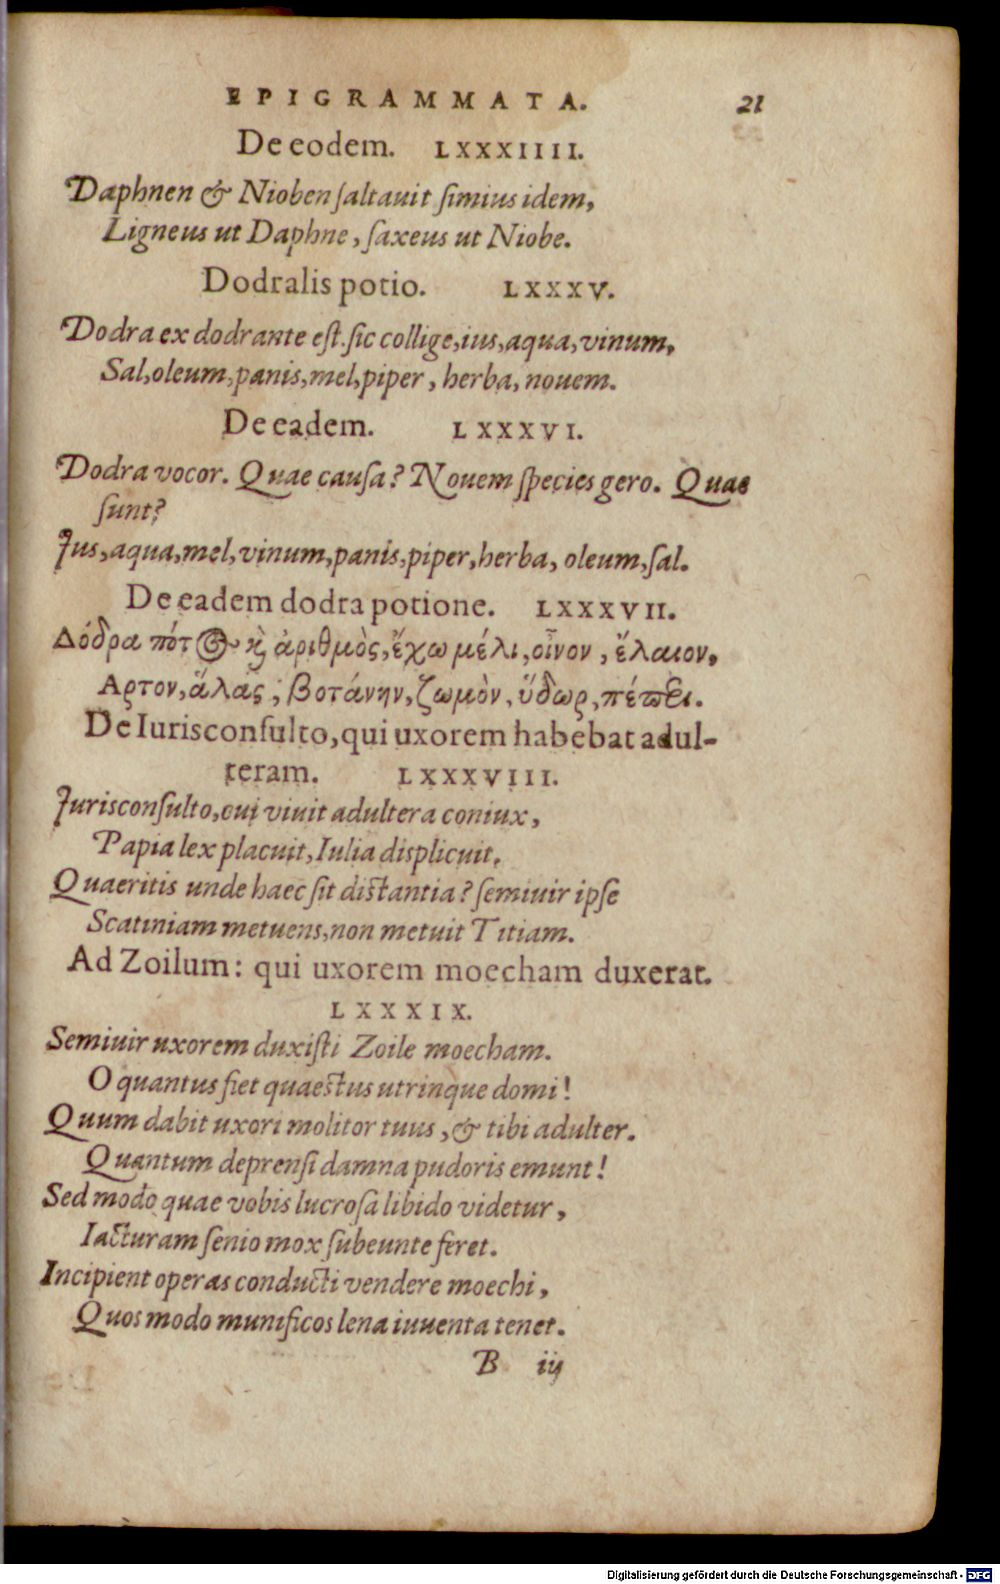 EPIGRAMMATA. 21
De eodem. LXXXIIII.
Daphnen & Nioben ſaltauit ſimius idem,
Ligneus ut Daphne, ſaxeus ut Niobe.
Dodralis potio. LXXXV.
Dodra ex dodrante eſt. ſic collige, ius, aqua, vinum,
Sal, oleum, panis, mel, piper, herba, nouem.
De eadem. LXXXVI.
Dodra vocor. Quae cauſa? Nouem ſpecies gero. Quae
ſunt?
Ius, aqua, mel, vinum, panis, piper, herba, oleum, ſal.
De eadem dodra potione. LXXXVII.
Δόδρα πότος καὶ ἀριθμὸς, ἔχω μέλι, οἶνον, ἔλαιον,
Αρτον, ἅλας, βοτάνην, ζωμὸν, ὕδωρ, πέπερι.
De Iurisconſulto, qui uxorem habebat adul-
teram. LXXXVIII.
Iurisconſulto, cui viuit adultera coniux,
Papia lex placuit, Iulia displicuit.
Quaeritis unde haec ſit distantia? ſemiuir ipſe
Scatiniam metuens, non metuit Titiam.
Ad Zoilum: qui uxorem moecham duxerat.
LXXXIX.
Semiuir uxorem duxiſti Zoile moecham.
O quantus fiet quaestus utrinque domi!
Quum dabit uxori molitor tuus, & tibi adulter.
Quantum deprenſi damna pudoris emunt!
Sed modo quae vobis lucroſa libido videtur,
Iacturam ſenio mox ſubeunte feret.
Incipient operas conducti vendere moechi,
Quos modo munificos lena iuuenta tenet.
B iij
Digitalisierung gefördert durch die Deutsche Forschungsgemeinschaft - DFG